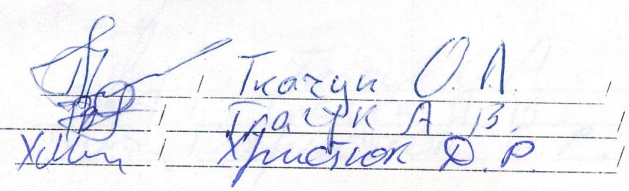 / Ткачук О. Л. /
/ Ткачук А В. /
/ Христюк Д. Р. /